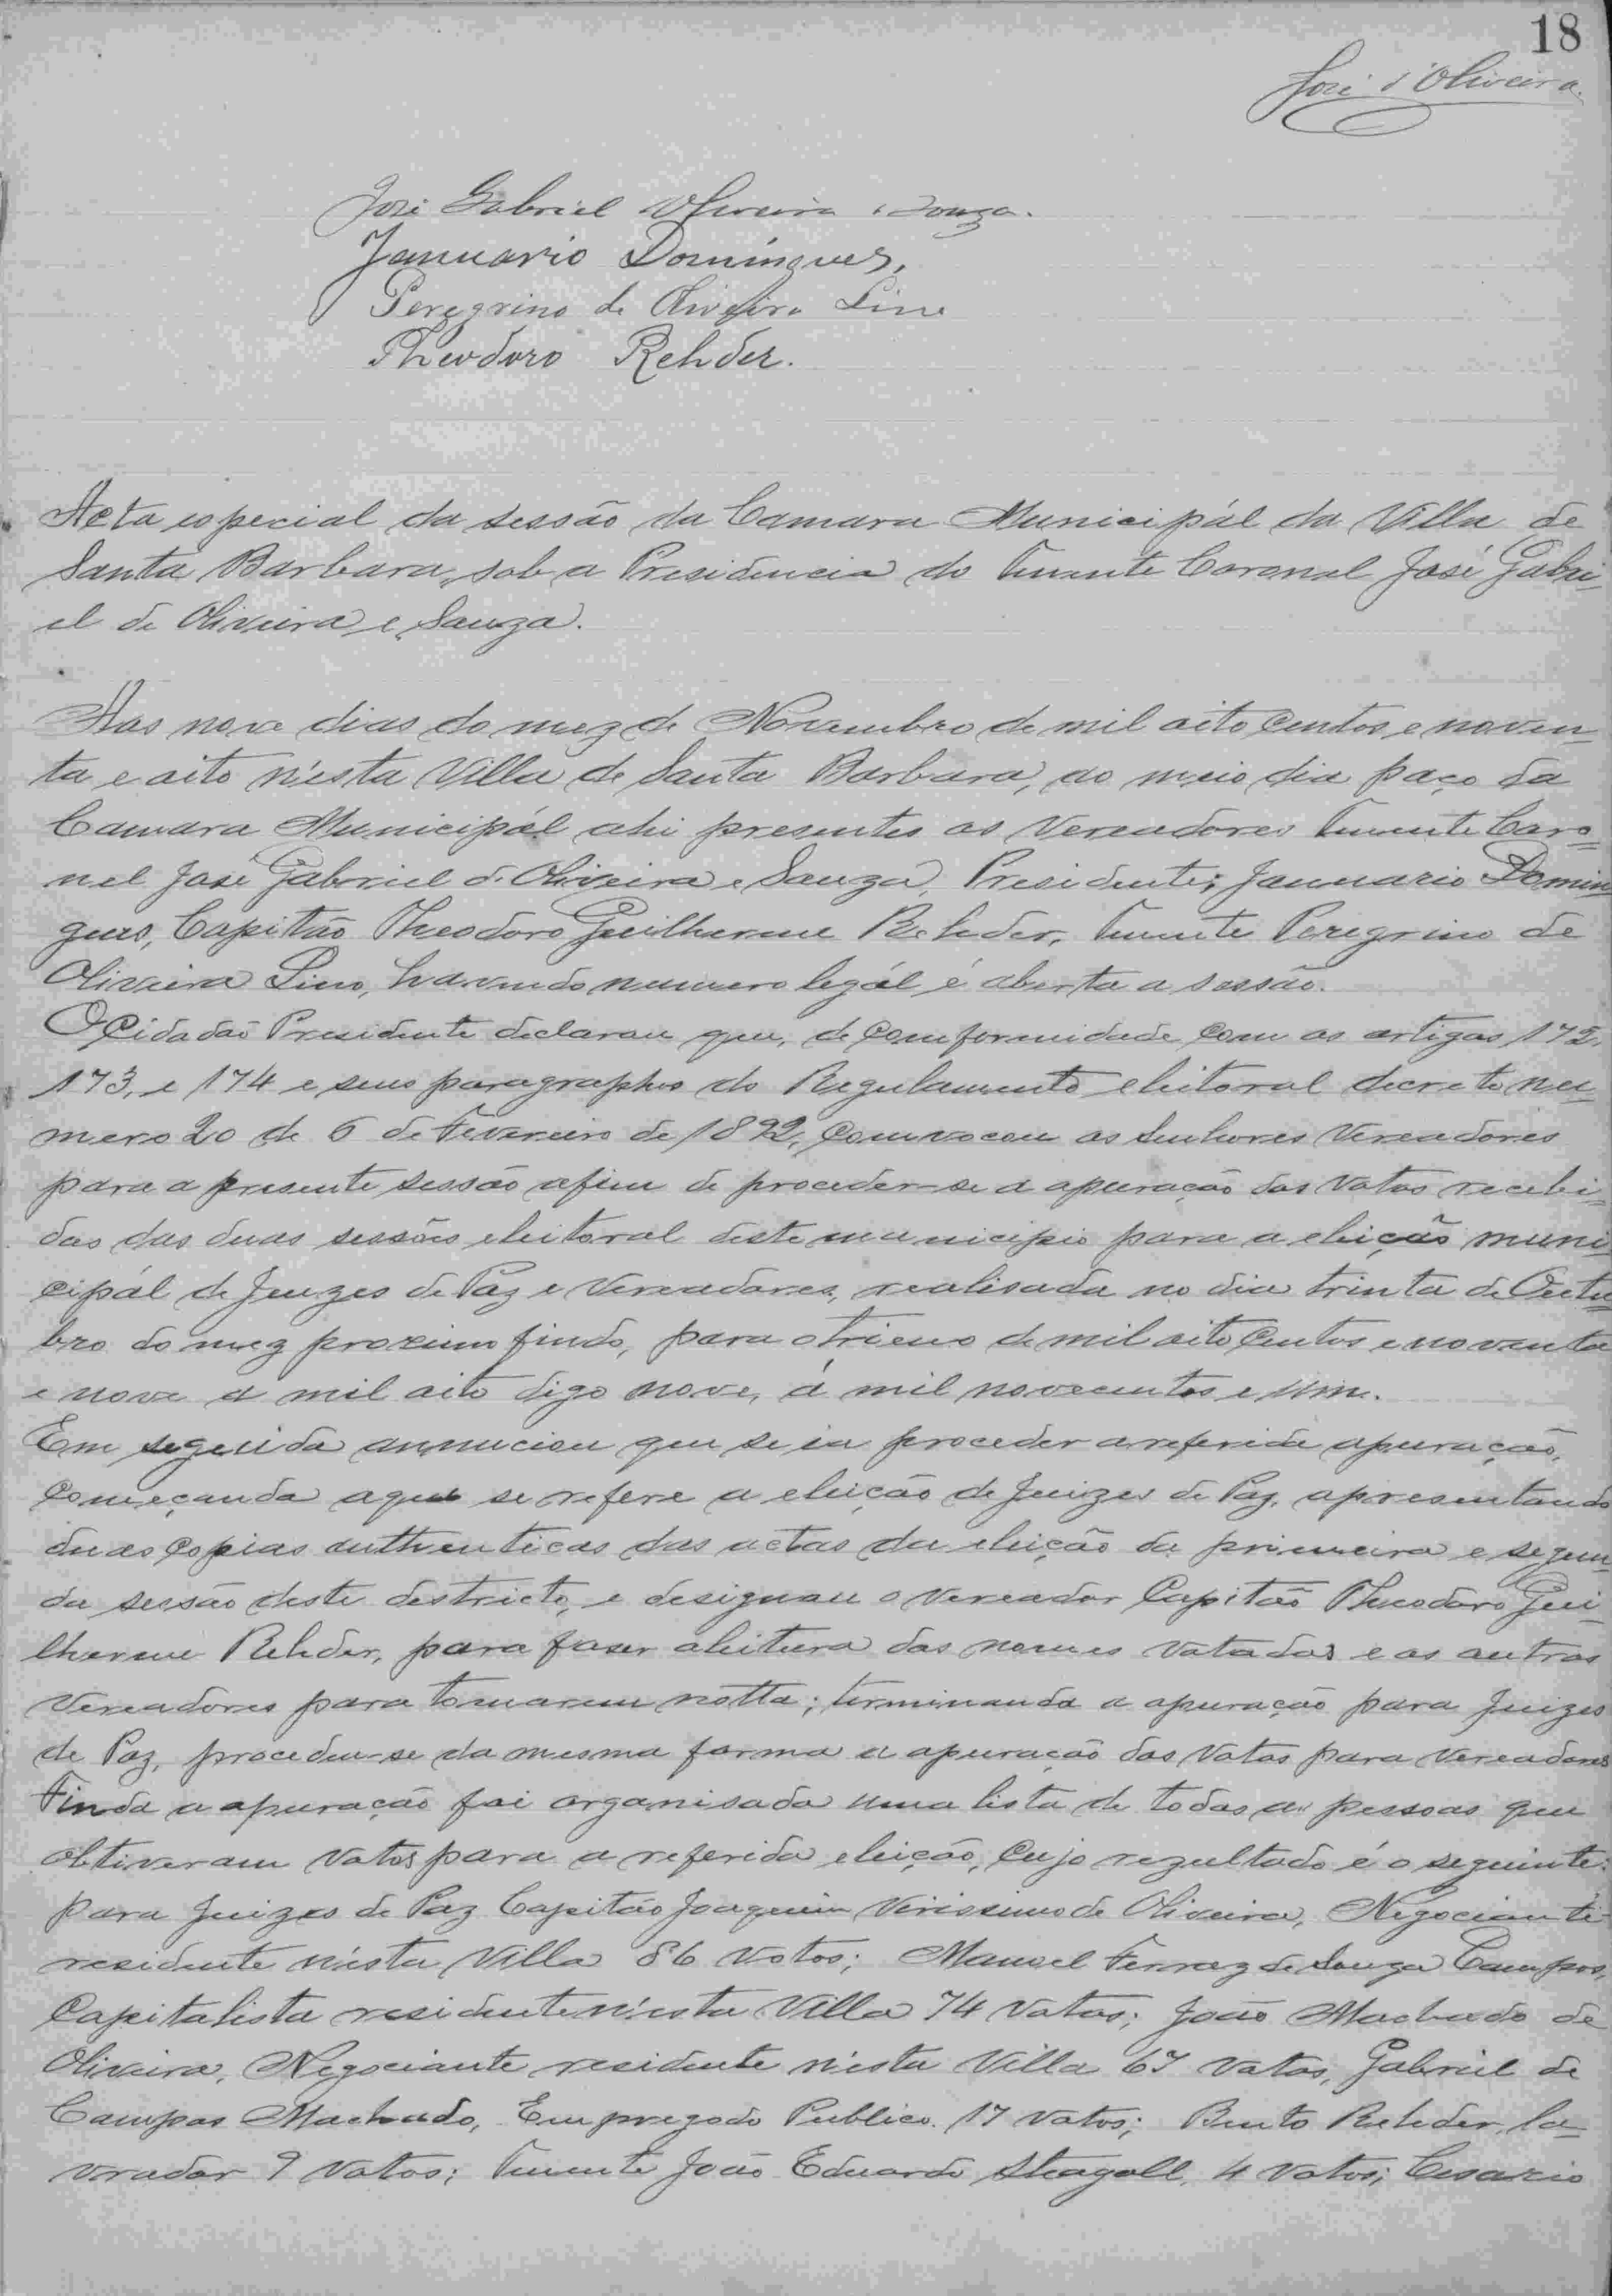 18
José d'Oliveira
José Gabriel Oliveira e Souza.
Januario Domingues,
Peregrino de Oliveira Lino
Theodoro Rehder.
Acta especial da sessão da Camara Municipál da Villa de
Santa Barbara, sob a Presidencia do Tenente Coronel José Gabri-
el de Oliveira e Souza.
Aos nove dias do mez de Novembro de mil oito centos e noven-
ta e oito n'esta Villa de Santa Barbara, ao meio dia paço da
Camara Municipál ahi presentes os Vereadores Tenente Coro-
nel José Gabriel de Oliveira e Souza, Presidente; Januario Domin
gues, Capitão Theodoro Guilherme Rehder, Tenente Peregrino de
Oliveira Lino, havendo numero legál é aberta a sessão.
O Cidadão Presidente declarou que, de comformidade com os artigos 172,
173, e 174 e seus paragraphos do Regulamento eleitoral decreto nu-
mero 20 de 6 de Fevereiro de 1892, comvocou os Senhores Vereadores
para a presente sessão afim de proceder-se a apuração dos votos recebi-
dos das duas sessões eleitoral deste municipio para a eleição muni
cipál de Juizes de Paz e Vereadores, realisada no dia trinta de Outu-
bro do mez proximo findo, para o trieno de mil oito centos e noventa
e nove a mil oito digo nove, á mil novecentos e um.
Em seguida annuciou que se ia proceder a referida apuração,
começando a que se refere a eleição de Juizes de Paz, apresentando
duas copias authenticas das actas da eleição da primeira e segun
da sessão deste destricto, e designou o Vereador Capitão Theodoro Gui-
lherme Rehder, para faser a leitura dos nomes votados e os outros
Vereadores para tomarem notta; terminando a apuração para Juizes
de Paz, procedeu-se da mesma forma a apuração dos votos para Vereadores
Finda a apuração foi organisada uma lista de todas as pessoas que
obtiveram votos para a referida eleição, cujo rezultado é o seguinte:
para Juizes de Paz Capitão Joaquim Verissimo de Oliveira, Negociante
residente n'esta Villa 86 votos; Manoel Ferraz de Souza Campos,
Capitalista residente n'esta Villa 74 votos; João Machado de
Oliveira, Negociante residente n'esta Villa 67 votos, Gabriel de
Campos Machado, Empregado Publico. 17 votos; Bento Rehder, la-
vrador 9 votos; Tenente João Eduardo Steagall, 4 votos; Cesario